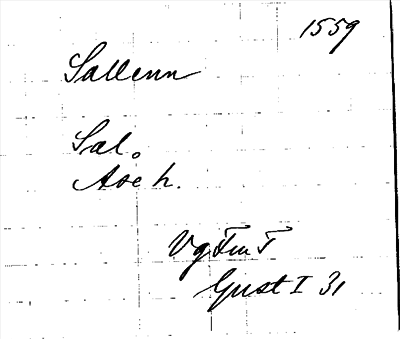 1559
Sallenn
Sal.
Ase h.
Vg Fm T
Gust I 31